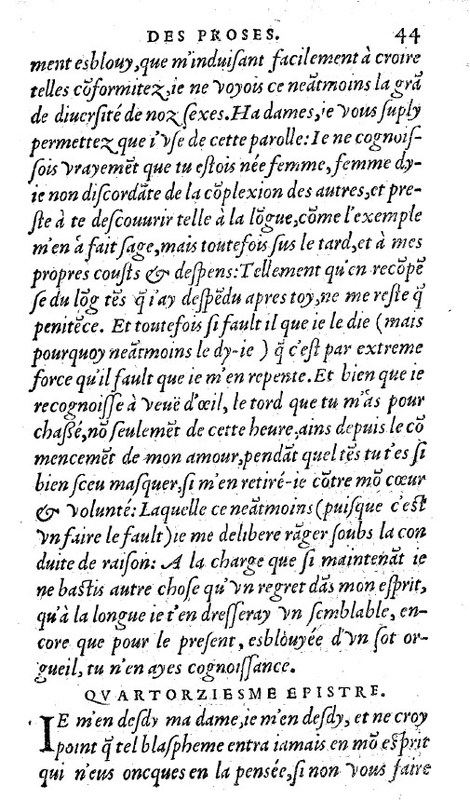 DES PROSES. 44
ment esblouy, que m'induiſant facilement à croire
telles cõformitez, ie ne voyois ce neãtmoins la grã
de diuerſité de noz ſexes. Ha dames, ie vous ſuply
permettez que i'vſe de cette parolle: Ie ne cognoiſ-
ſois vrayemẽt que tu eſtois née femme, femme dy-
ie non diſcordãte de la cõplexion des autres, et pre-
ſte à te deſcouurir telle à la lõgue, cõme l'exemple
m'en à fait ſage, mais toutefois ſus le tard, et à mes
propres couſts & deſpens: Tellement qu'en recõpẽ
ſe du lõg tẽs q̃ i'ay deſpẽdu apres toy, ne me reſte q̃
penitẽce. Et toutefois ſi fault il que ie le die (mais
pourquoy neãtmoins le dy-ie ) q̃ c'eſt par extreme
force qu'il fault que ie m'en repente. Et bien que ie
recognoiſſe à veuë d'œil, le tord que tu m'as pour
chaſſé, nõ ſeulemẽt de cette heure, ains depuis le cõ
mencemẽt de mon amour, pendãt quel tẽs tu t'es ſi
bien ſceu maſquer, ſi m'en retiré-ie cõtre mõ cœur
& volunté: Laquelle ce neãtmoins (puiſque c'eſt
vn faire le fault) ie me delibere rãger ſoubs la con
duite de raiſon: A la charge que ſi maintenãt ie
ne baſtis autre choſe qu'vn regret dãs mon eſprit,
qu'à la longue ie t'en dreſſeray vn ſemblable, en-
core que pour le preſent, esblouyée d'vn ſot or-
gueil, tu n'en ayes cognoiſſance.
QVARTORZIESME EPISTRE.
IE m'en deſdy ma dame, ie m'en deſdy, et ne croy
point q̃ tel blaſpheme entra iamais en mõ eſprit
qui n'eus oncques en la penſée, ſi non vous faire